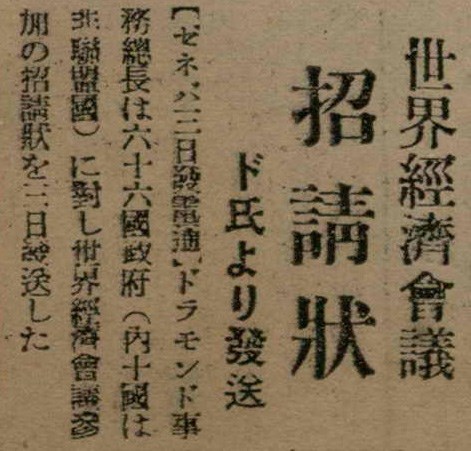 世界經濟會議
招請狀
ド氏より發送
【ゼネバ三日發電通】ドラモンド事
務總長は六十六國政府（内十國は
非聯盟國）に對し世界經濟會議參
加の招請狀を三日發送した